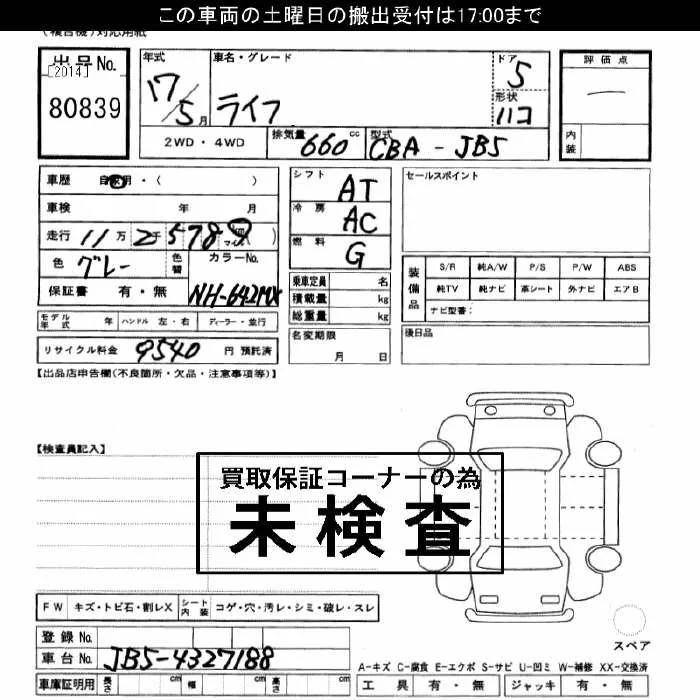 この車両の土曜日の搬出受付は17:00まで
(複合機)対応用紙
出品No.
[2014]
80839
年式 車名・グレード ドア
17/5月 ライフ 5
形状 ハコ
評価点
一
内装
2WD・4WD 排気量 660cc 型式 CBA-JB5
車歴 自家用・( )
車検 年 月
走行 11万2千578 km マイル( )
色 グレー 色替 カラーNo.
保証書 有・無 NH-642MX
シフト AT
冷房 AC
燃料 G
乗車定員 名
積載量 kg
総重量 kg
セールスポイント
装備品
S/R 純A/W P/S P/W ABS
純TV 純ナビ 革シート 外ナビ エアB
ナビ型番:
モデル年式 年 ハンドル 左・右 ディーラー・並行
名変期限
月 日
後日品
リサイクル料金 9540 円 預託済
【出品店申告欄(不良箇所・欠品・注意事項等)】
【検査員記入】
買取保証コーナーの為
未検査
FW キズ・トビ石・割レX シート内装 コゲ・穴・汚レ・シミ・破レ・スレ
登録No.
車台No. JB5-4327188
スペア
A-キズ C-腐食 E-エクボ S-サビ U-凹ミ W-補修 XX-交換済
車庫証明用 長さ cm 幅 cm 高さ cm
工具 有・無 ジャッキ 有・無